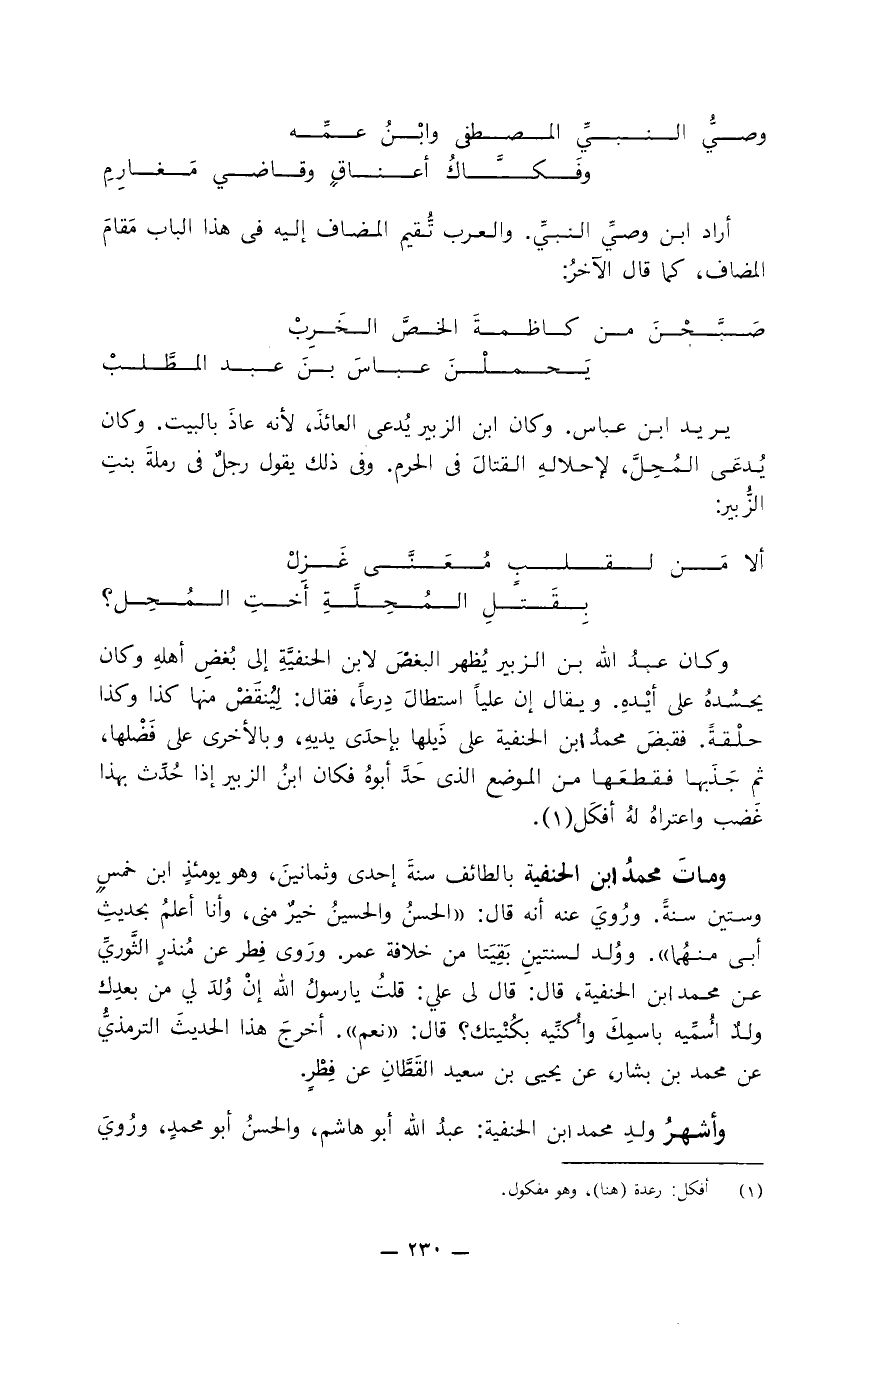 وصيُّ النبيِّ المصطفى وابْنُ عمِّه
وفَكَّاكُ أعناقٍ وقاضي مَغارِمِ
أراد ابن وصيِّ النبيِّ. والعرب تُقيم المضاف إليه فى هذا الباب مَقامَ
المضاف، كما قال الآخرُ:
صَبَّحْنَ من كاظمةَ الخصَّ الخَرِبْ
يَحملْنَ عباسَ بنَ عبد المطَّلبْ
يريد ابن عباس. وكان ابن الزبير يُدعى العائذَ، لأنه عاذَ بالبيت. وكان
يُدعَى المُحِلَّ، لإحلالهِ القتالَ فى الحرم. وفى ذلك يقول رجلٌ فى رملةَ بنتِ
الزُّبير:
ألا مَن لقلبٍ مُعَنَّى غَزِلْ
بِقَتلِ المُحِلَّةِ أختِ المُحِل؟
وكان عبدُ الله بن الزبير يُظهر البغضَ لابن الحنفيَّةِ إلى بُغضِ أهلهِ وكان
يحسُدهُ على أيْدهِ. ويقال إن علياً استطالَ دِرعاً، فقال: لِيُنقَضْ منها كذا وكذا
حلْقةً. فقبضَ محمدُ ابن الحنفية على ذيلها بإحدَى يديهِ، وبالأخرى على فَضْلها،
ثم جَذَبها فقطعَها من الموضع الذى حَدَّ أبوهُ فكان ابنُ الزبير إذا حُدِّث بهذا
غَضب واعتراهُ لهُ أفكَل(١).
وماتَ محمدُ ابن الحنفية بالطائف سنةَ إحدى وثمانينَ، وهو يومئذٍ ابن خمسٍ
وستين سنةً. ورُويَ عنه أنه قال: «الحسنُ والحسينُ خيرٌ منى، وأنا أعلمُ بحديثِ
أبى منهُما». ووُلد لسنتينِ بَقِيَتا من خلافة عمر. ورَوى فِطر عن مُنذرٍ الثَّوريِّ
عن محمد ابن الحنفية، قال: قال لى علي: قلتُ يارسولُ الله إنْ وُلدَ لي من بعدِك
ولدٌ اُسمِّيه باسمِكَ واُكنِّيه بكُنْيتك؟ قال: «نعم». أخرجَ هذا الحديثَ الترمذيُّ
عن محمد بن بشار، عن يحيى بن سعيد القَطَّانِ عن فِطْرٍ.
وأشهرُ ولدِ محمد ابن الحنفية: عبدُ الله أبو هاشم، والحسنُ أبو محمدٍ، ورُويَ
(١) أفكل: رعدة (هنا)، وهو مفكول.
— ٢٣٠ —